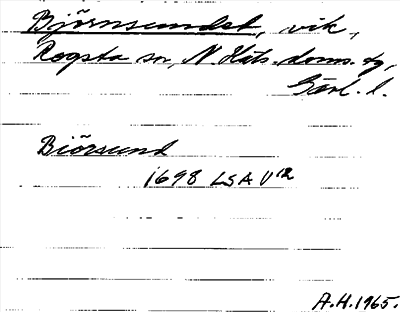 Björnsundet, vik,
Rogsta sn, N. Häls. doms. tg,
Gävl. l.
Biörsund
1698 LSA V12
A.H. 1965.